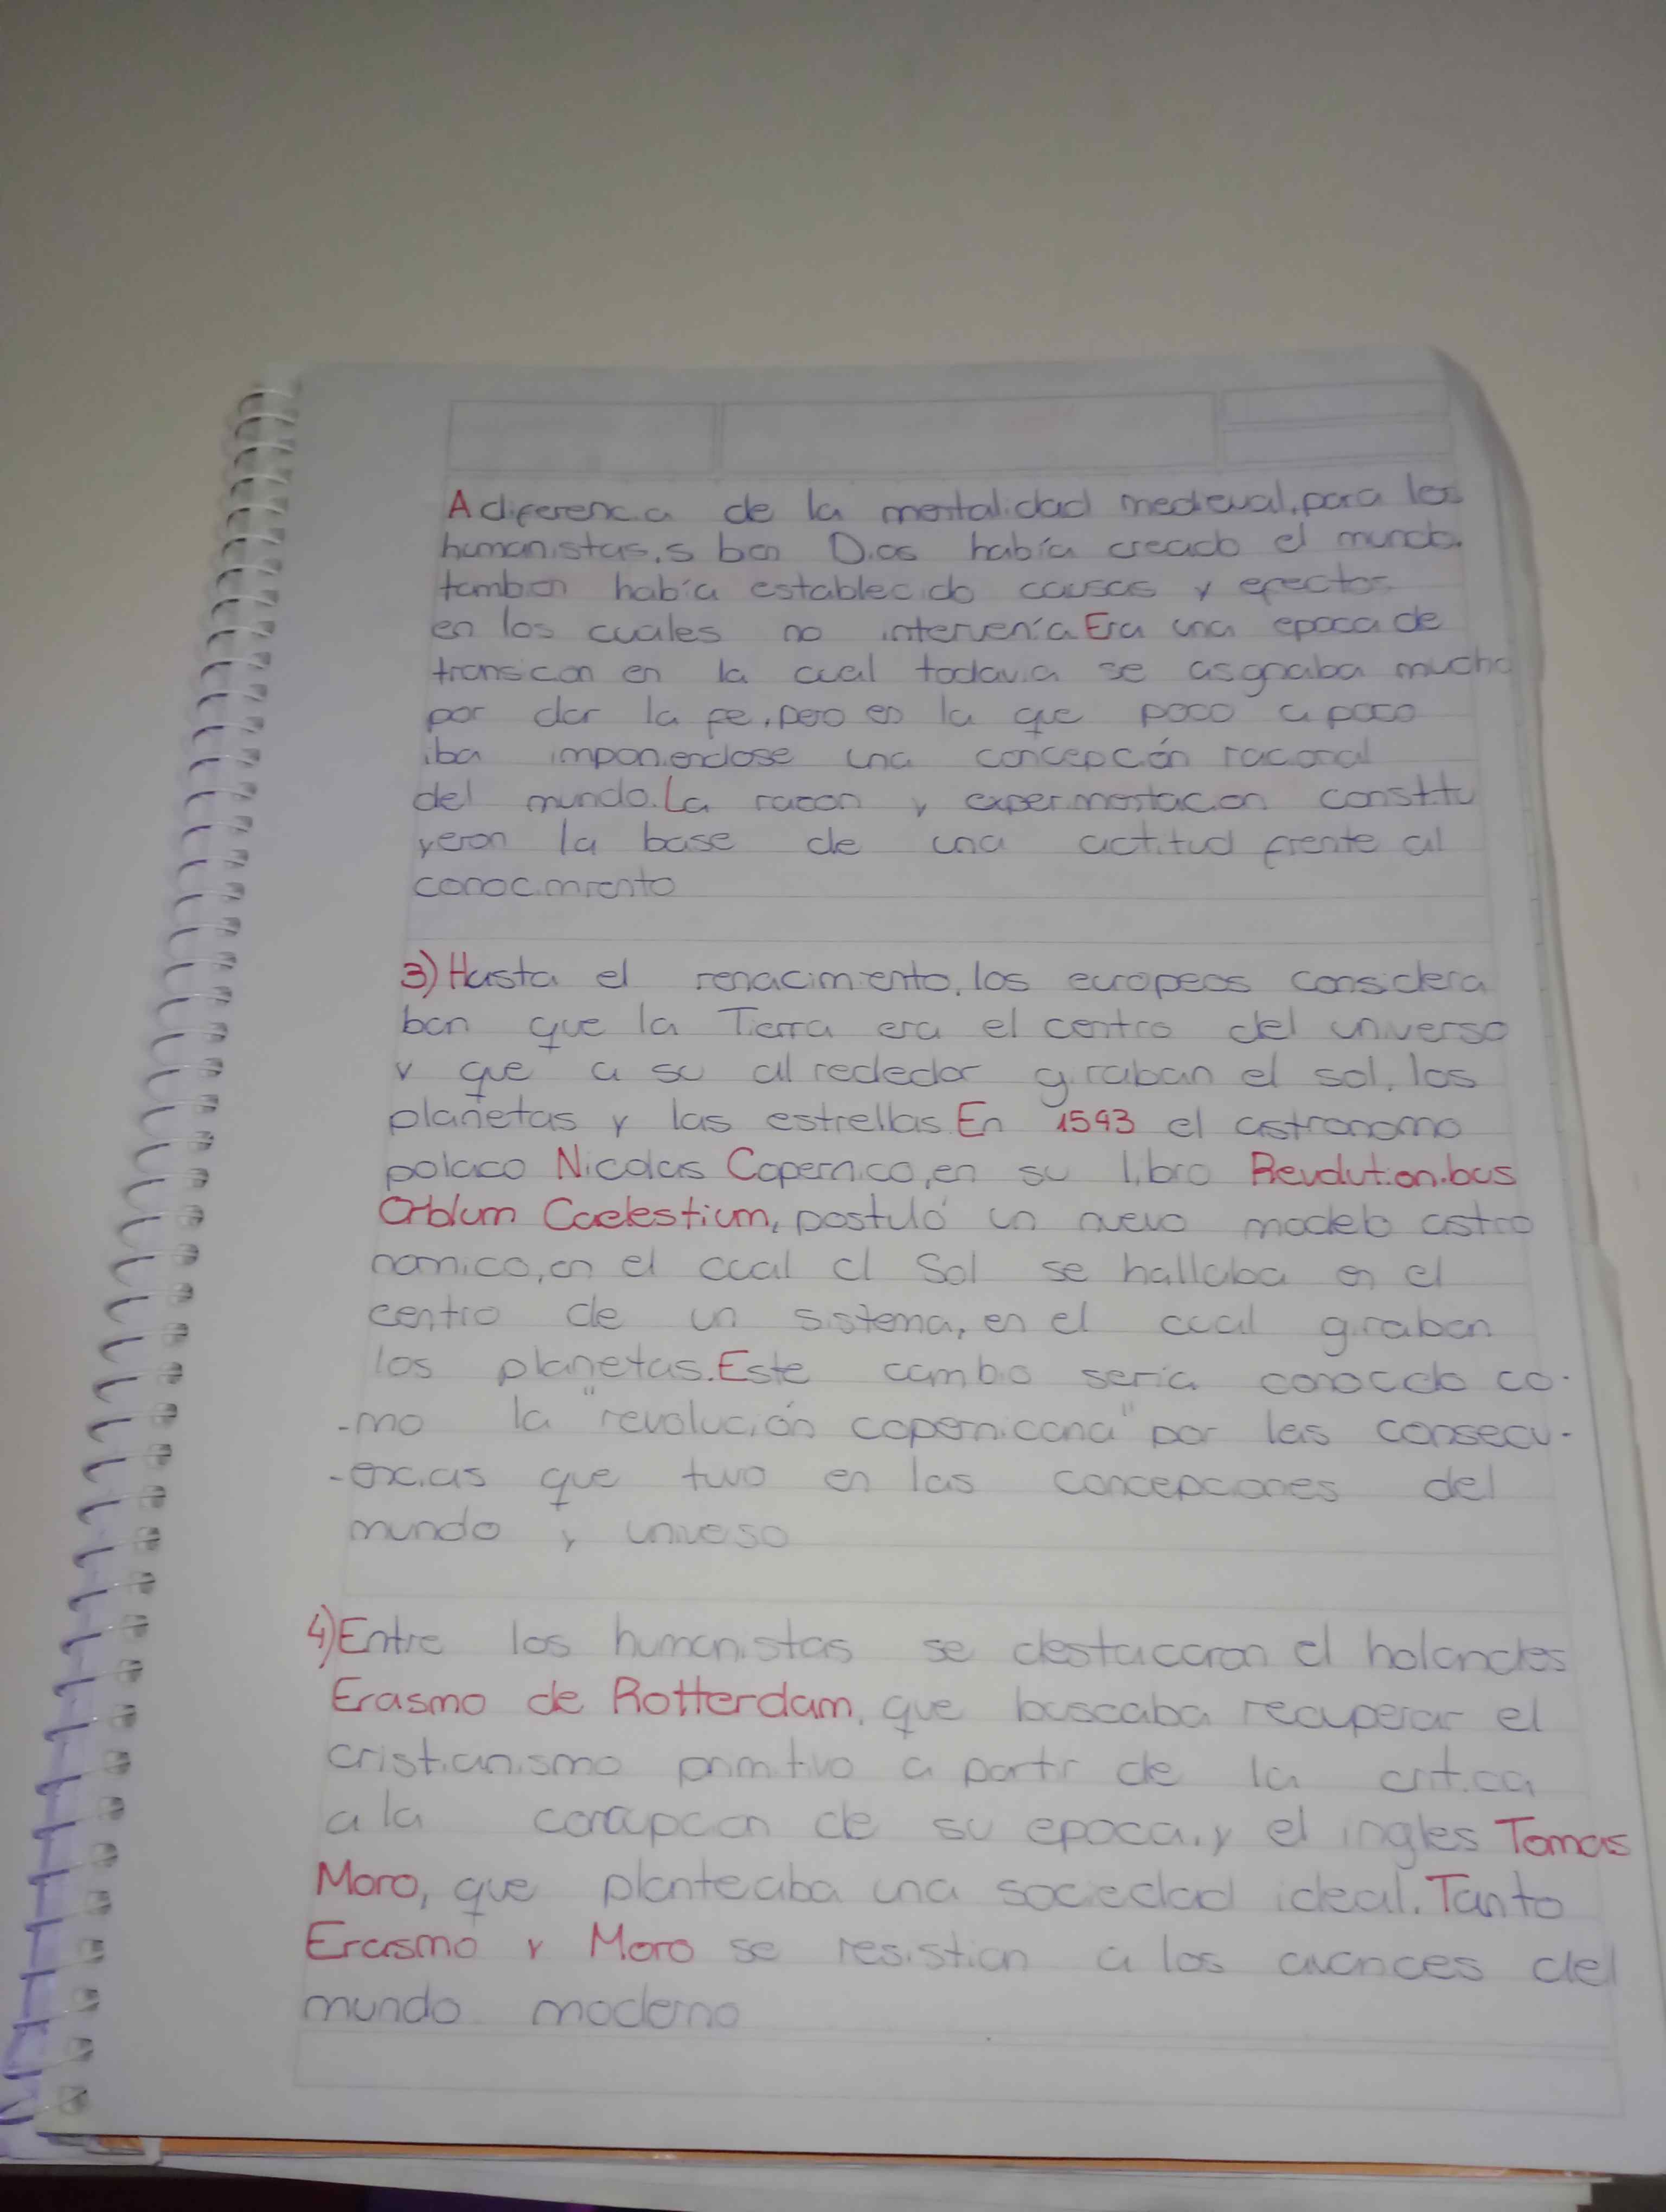 A diferencia de la mentalidad medieval, para los
humanistas, si bien Dios había creado el mundo.
tambien había establecido causas y efectos
en los cuales no intervenía Era una epoca de
transicion en la cual todavia se asignaba mucho
por dar la fe, pero en la que poco a poco
iba imponiendose una concepción racional
del mundo. La razon y experimentacion constitu
yeron la base de una actitud frente al
conocimiento
3) Hasta el renacimiento, los europeos considera
ban que la Tierra era el centro del universo
y que a su al rededor giraban el sol, los
planetas y las estrellas En 1543 el astronomo
polaco Nicolas Copernico, en su libro Revolutionibus
Orbium Caelestium, postuló un nuevo modelo astro
nomico, en el cual el Sol se hallaba en el
centro de un sistema, en el cual giraban
los planetas. Este cambio sería conocido co-
-mo la "revolución copernicana" por las consecu-
-encias que tuvo en las concepciones del
mundo y univeso
4) Entre los humanistas se destacaron el holandes
Erasmo de Rotterdam, que buscaba recuperar el
cristianismo primitivo a partir de la critica
a la corrupcion de su epoca, y el ingles Tomas
Moro, que planteaba una sociedad ideal. Tanto
Erasmo y Moro se resistian a los avances del
mundo moderno